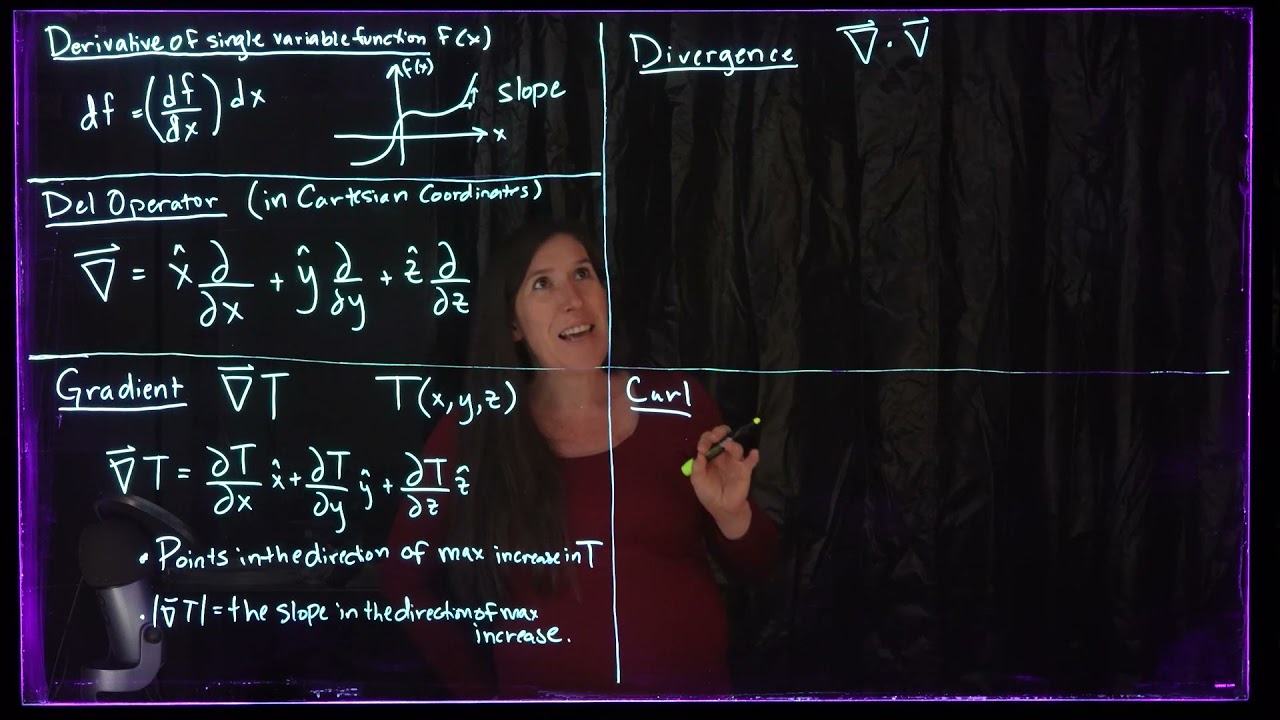 Derivative of single variable function F(x)
df = (df/dx) dx
f(x)
slope
x
Del Operator (in Cartesian Coordinates)
∇⃗ = x̂ ∂/∂x + ŷ ∂/∂y + ẑ ∂/∂z
Gradient ∇⃗T T(x,y,z)
∇⃗T = ∂T/∂x x̂ + ∂T/∂y ŷ + ∂T/∂z ẑ
• Points in the direction of max increase in T
• |∇⃗T| = the slope in the direction of max
increase.
Divergence ∇⃗ · V⃗
Curl